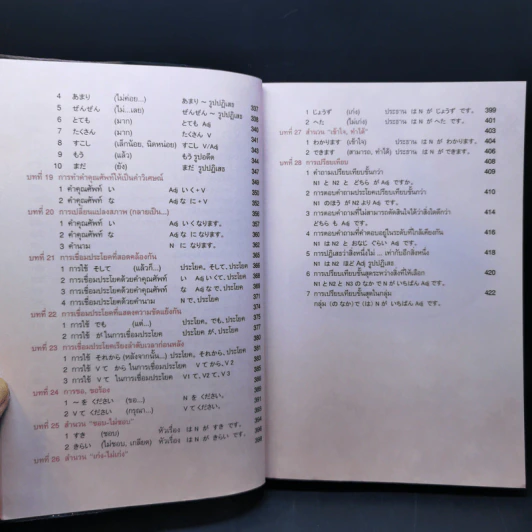 4 あまり (ไม่ค่อย...) あまり ~ รูปปฏิเสธ 337
5 ぜんぜん (ไม่...เลย) ぜんぜん ~ รูปปฏิเสธ
6 とても (มาก) とても Adj
7 たくさん (มาก) たくさん V
8 すこし (เล็กน้อย, นิดหน่อย) すこし V/Adj
9 もう (แล้ว) もう รูปอดีต
10 まだ (ยัง) まだ รูปปฏิเสธ
บทที่ 19 การทำคำคุณศัพท์ให้เป็นคำวิเศษณ์
1 คำคุณศัพท์ い Adj い く + V
2 คำคุณศัพท์ な Adj な に + V
บทที่ 20 การเปลี่ยนแปลงสภาพ (กลายเป็น...)
1 คำคุณศัพท์ い Adj い くなります.
2 คำคุณศัพท์ な Adj な になります.
3 คำนาม N に なります.
บทที่ 21 การเชื่อมประโยคที่สอดคล้องกัน
1 การใช้ そして (แล้วก็...) ประโยค, そして, ประโยค
2 การเชื่อมประโยคด้วยคำคุณศัพท์ い Adj い くて, ประโยค
3 การเชื่อมประโยคด้วยคำคุณศัพท์ な Adj な で, ประโยค
4 การเชื่อมประโยคด้วยคำนาม N で, ประโยค
บทที่ 22 การเชื่อมประโยคที่แสดงความขัดแย้งกัน
1 การใช้ でも (แต่...) ประโยค, でも, ประโยค
2 การใช้ が ในการเชื่อมประโยค ประโยค が, ประโยค
บทที่ 23 การเชื่อมประโยคเรียงลำดับเวลาก่อนหลัง
1 การใช้ それから (หลังจากนั้น...) ประโยค, それから, ประโยค
2 การใช้ V て から ในการเชื่อมประโยค V て から, V2
3 การใช้ V て ในการเชื่อมประโยค V1 て, V2 て, V 3
บทที่ 24 การขอ, ขอร้อง
1 ー を ください (ขอ...) N を ください.
2 V て ください (กรุณา...) V て ください.
บทที่ 25 สำนวน "ชอบ-ไม่ชอบ"
1 すき (ชอบ) หัวเรื่อง は N が すき です.
2 きらい (ไม่ชอบ, เกลียด) หัวเรื่อง は N が きらい です.
บทที่ 26 สำนวน "เก่ง-ไม่เก่ง"
1 じょうず (เก่ง) ประธาน は N が じょうず です. 399
2 へた (ไม่เก่ง) ประธาน は N が へた です. 401
บทที่ 27 สำนวน "เข้าใจ, ทำได้" 403
1 わかります (เข้าใจ) ประธาน は N が わかります. 404
2 できます (สามารถ, ทำได้) ประธาน は N が できます. 406
บทที่ 28 การเปรียบเทียบ 408
1 คำถามเปรียบเทียบขั้นกว่า 409
N1 と N2 と どちら が Adj ですか.
2 การตอบคำถามประโยคเปรียบเทียบขั้นกว่า 410
N1 のほう が N2 より Adj です.
3 การตอบคำถามที่ไม่สามารถตัดสินใจได้ว่าสิ่งใดดีกว่า 414
どちら も Adj です.
4 การตอบคำถามที่คำตอบอยู่ในระดับที่ใกล้เคียงกัน 416
N1 は N2 と おなじ ぐらい Adj です.
5 การปฏิเสธว่าสิ่งหนึ่งไม่ ... เท่ากับอีกสิ่งหนึ่ง 418
N1 は N2 ほど Adj รูปปฏิเสธ
6 การเปรียบเทียบขั้นสุดระหว่างสิ่งที่ให้เลือก 420
N1 と N2 と N3 の なか で N が いちばん Adj です.
7 การเปรียบเทียบขั้นสุดในกลุ่ม 422
กลุ่ม (の なか) で (は) N が いちばん Adj です.